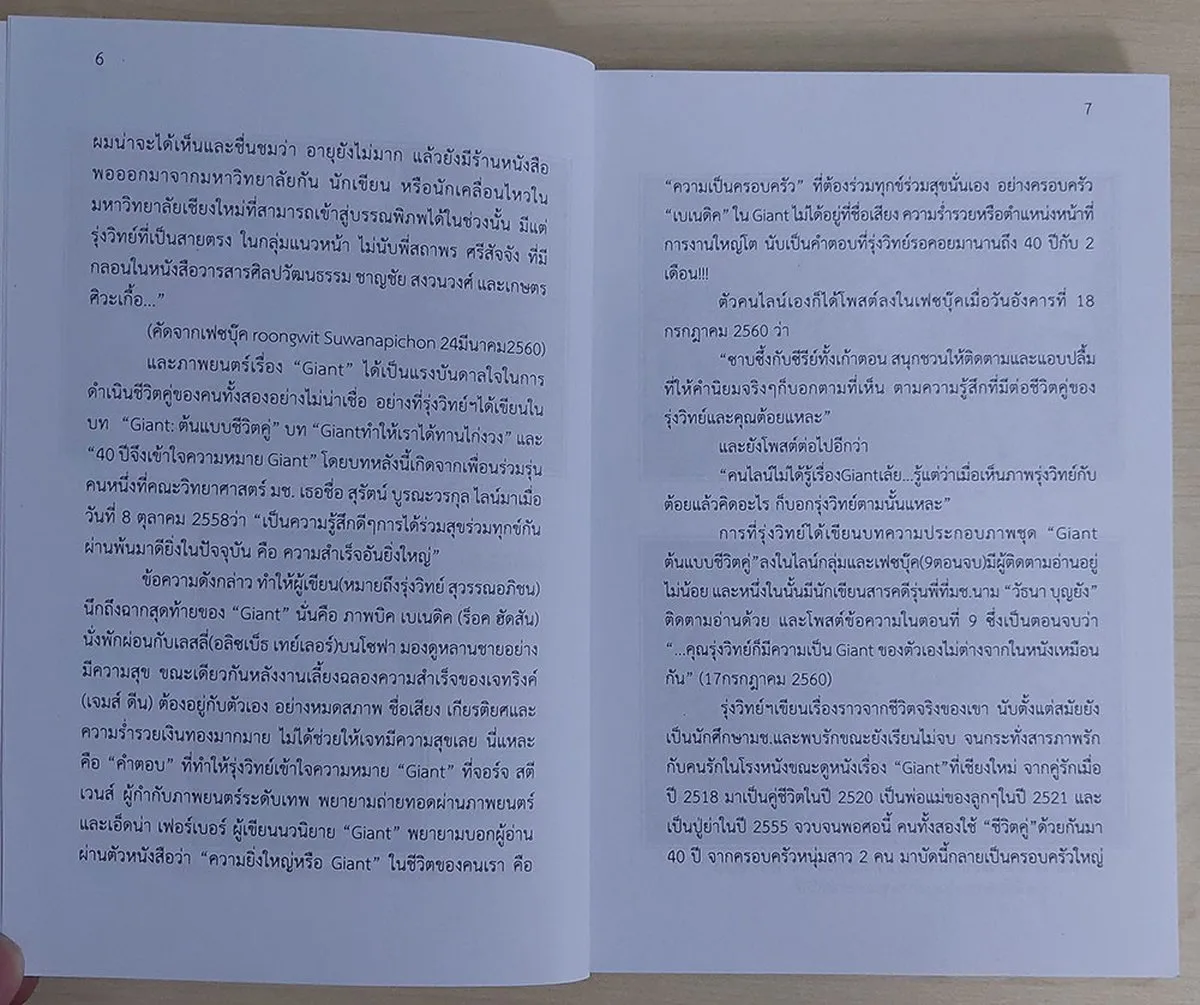 6
ผมน่าจะได้เห็นและชื่นชมว่า อายุยังไม่มาก แล้วยังมีร้านหนังสือ
พอออกมาจากมหาวิทยาลัยกัน นักเขียน หรือนักเคลื่อนไหวใน
มหาวิทยาลัยเชียงใหม่ที่สามารถเข้าสู่บรรณพิภพได้ในช่วงนั้น มีแต่
รุ่งวิทย์ที่เป็นสายตรง ในกลุ่มแนวหน้า ไม่นับพี่สถาพร ศรีสัจจัง ที่มี
กลอนในหนังสือวารสารศิลปวัฒนธรรม ชาญชัย สงวนวงศ์ และเกษตร
ศิวะเกื้อ...”
(คัดจากเฟซบุ๊ค roongwit Suwanapichon 24มีนาคม2560)
และภาพยนตร์เรื่อง “Giant” ได้เป็นแรงบันดาลใจในการ
ดำเนินชีวิตคู่ของคนทั้งสองอย่างไม่น่าเชื่อ อย่างที่รุ่งวิทย์ฯได้เขียนใน
บท “Giant: ต้นแบบชีวิตคู่” บท “Giantทำให้เราได้ทานไก่งวง” และ
“40 ปีจึงเข้าใจความหมาย Giant” โดยบทหลังนี้เกิดจากเพื่อนร่วมรุ่น
คนหนึ่งที่คณะวิทยาศาสตร์ มช. เธอชื่อ สุรัตน์ บูรณะวรกุล ไลน์มาเมื่อ
วันที่ 8 ตุลาคม 2558ว่า “เป็นความรู้สึกดีๆการได้ร่วมสุขร่วมทุกข์กัน
ผ่านพ้นมาดียิ่งในปัจจุบัน คือ ความสำเร็จอันยิ่งใหญ่”
ข้อความดังกล่าว ทำให้ผู้เขียน(หมายถึงรุ่งวิทย์ สุวรรณอภิชน)
นึกถึงฉากสุดท้ายของ “Giant” นั่นคือ ภาพบิค เบเนดิค (ร็อค ฮัดสัน)
นั่งพักผ่อนกับเลสลี่(อลิซเบ็ธ เทย์เลอร์)บนโซฟา มองดูหลานชายอย่าง
มีความสุข ขณะเดียวกันหลังงานเลี้ยงฉลองความสำเร็จของเจทริงค์
(เจมส์ ดีน) ต้องอยู่กับตัวเอง อย่างหมดสภาพ ชื่อเสียง เกียรติยศและ
ความร่ำรวยเงินทองมากมาย ไม่ได้ช่วยให้เจทมีความสุขเลย นี่แหละ
คือ “คำตอบ” ที่ทำให้รุ่งวิทย์เข้าใจความหมาย “Giant” ที่จอร์จ สตี
เวนส์ ผู้กำกับภาพยนตร์ระดับเทพ พยายามถ่ายทอดผ่านภาพยนตร์
และเอ็ดน่า เฟอร์เบอร์ ผู้เขียนนวนิยาย “Giant” พยายามบอกผู้อ่าน
ผ่านตัวหนังสือว่า “ความยิ่งใหญ่หรือ Giant” ในชีวิตของคนเรา คือ
7
“ความเป็นครอบครัว” ที่ต้องร่วมทุกข์ร่วมสุขนั่นเอง อย่างครอบครัว
“เบเนดิค” ใน Giant ไม่ได้อยู่ที่ชื่อเสียง ความร่ำรวยหรือตำแหน่งหน้าที่
การงานใหญ่โต นับเป็นคำตอบที่รุ่งวิทย์รอคอยมานานถึง 40 ปีกับ 2
เดือน!!!
ตัวคนไลน์เองก็ได้โพสต์ลงในเฟซบุ๊คเมื่อวันอังคารที่ 18
กรกฎาคม 2560 ว่า
“ซาบซึ้งกับซีรีย์ทั้งเก้าตอน สนุกชวนให้ติดตามและแอบปลื้ม
ที่ให้คำนิยมจริงๆก็บอกตามที่เห็น ตามความรู้สึกที่มีต่อชีวิตคู่ของ
รุ่งวิทย์และคุณต้อยแหละ”
และยังโพสต์ต่อไปอีกว่า
“คนไลน์ไม่ได้รู้เรื่องGiantเล้ย...รู้แต่ว่าเมื่อเห็นภาพรุ่งวิทย์กับ
ต้อยแล้วคิดอะไร ก็บอกรุ่งวิทย์ตามนั้นแหละ”
การที่รุ่งวิทย์ได้เขียนบทความประกอบภาพชุด “Giant
ต้นแบบชีวิตคู่”ลงในไลน์กลุ่มและเฟซบุ๊ค(9ตอนจบ)มีผู้ติดตามอ่านอยู่
ไม่น้อย และหนึ่งในนั้นมีนักเขียนสารคดีรุ่นพี่ที่มช.นาม “วัธนา บุญยัง”
ติดตามอ่านด้วย และโพสต์ข้อความในตอนที่ 9 ซึ่งเป็นตอนจบว่า
“...คุณรุ่งวิทย์ก็มีความเป็น Giant ของตัวเองไม่ต่างจากในหนังเหมือน
กัน” (17กรกฎาคม 2560)
รุ่งวิทย์ฯเขียนเรื่องราวจากชีวิตจริงของเขา นับตั้งแต่สมัยยัง
เป็นนักศึกษามช.และพบรักขณะยังเรียนไม่จบ จนกระทั่งสารภาพรัก
กับคนรักในโรงหนังขณะดูหนังเรื่อง “Giant”ที่เชียงใหม่ จากคู่รักเมื่อ
ปี 2518 มาเป็นคู่ชีวิตในปี 2520 เป็นพ่อแม่ของลูกๆในปี 2521 และ
เป็นปู่ย่าในปี 2555 จวบจนพอศอนี้ คนทั้งสองใช้ “ชีวิตคู่”ด้วยกันมา
40 ปี จากครอบครัวหนุ่มสาว 2 คน มาบัดนี้กลายเป็นครอบครัวใหญ่